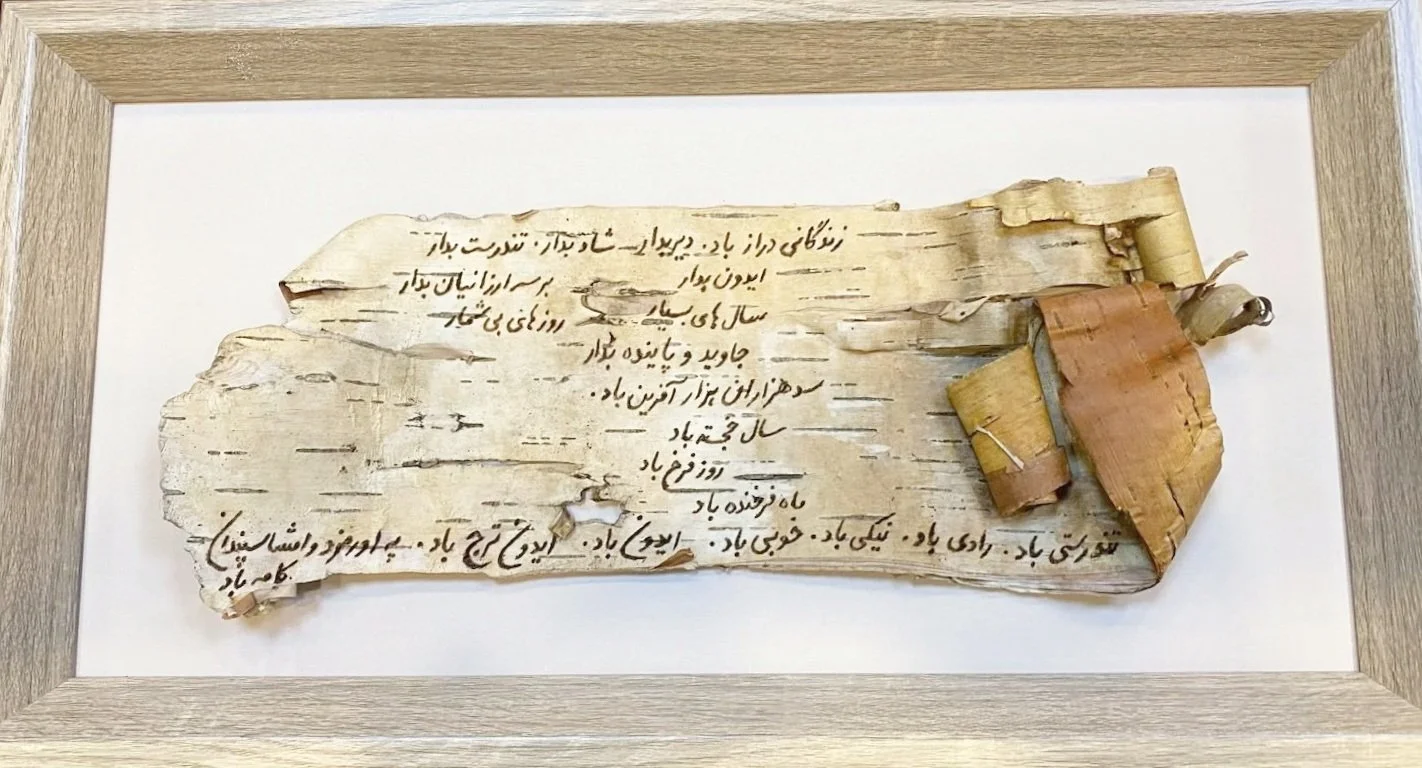 زندگانی دراز باد. دیر بدار شاد بدار. تندرست بدار
ایدون بدار بر سر ارزانیان بدار
سال های بسیار روزهای بی شمار
جاوید و پاینده بدار
سد هزاران هزار آفرین باد.
سال خجسته باد
روز فرخ باد
ماه فرخنده باد
تندرستی باد. رادی باد. نیکی باد. خوبی باد. ایدون باد. ایدون ترج باد. په اورمزد و امشاسپندان
کامه باد